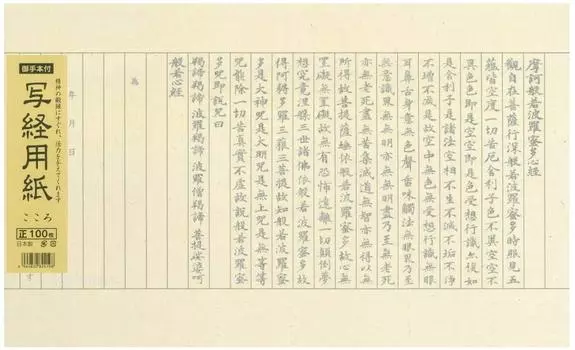 摩訶般若波羅蜜多心経
觀自在菩薩行深般若波羅蜜多時照見五
蘊皆空度一切苦厄舎利子色不異空空不
異色色即是空空即是色受想行識亦復如
是舎利子是諸法空相不生不滅不垢不浄
不増不減是故空中無色無受想行識無眼
耳鼻舌身意無色聲香味觸法無眼界乃至
無意識界無無明亦無無明盡乃至無老死
亦無老死盡無苦集滅道無智亦無得以無
所得故菩提薩埵依般若波羅蜜多故心無
罣礙無罣礙故無有恐怖遠離一切顛倒夢
想究竟涅槃三世諸佛依般若波羅蜜多故
得阿耨多羅三藐三菩提故知般若波羅蜜
多是大神呪是大明呪是無上呪是無等等
呪能除一切苦真實不虚故説般若波羅蜜
多呪即説呪曰
羯諦羯諦 波羅羯諦 波羅僧羯諦 菩提娑婆呵
般若心経
為
年 月 日
御手本付
精神の鍛練にすぐれ、活力を与えてくれます
写経用紙
こころ
正100枚
日本製